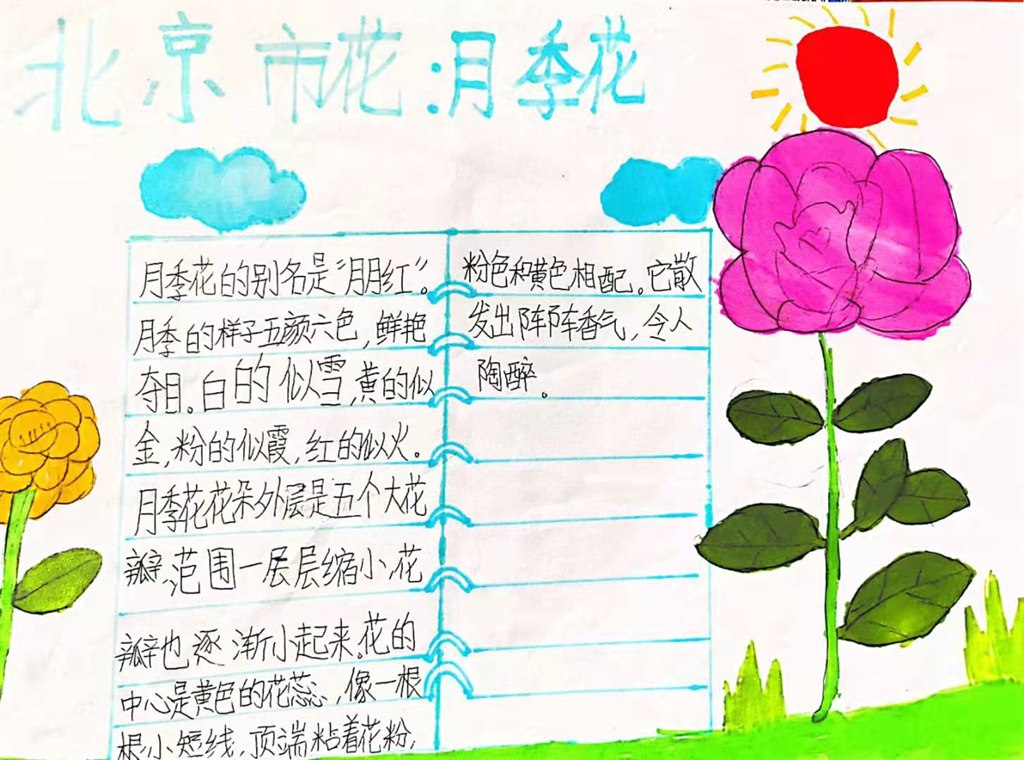 北京市花:月季花
月季花的别名是“月月红”。
月季的样子五颜六色,鲜艳
夺目。白的似雪,黄的似
金,粉的似霞,红的似火。
月季花花朵外层是五个大花
瓣,范围一层层缩小,花
瓣也逐渐小起来,花的
中心是黄色的花蕊,像一根
根小短线,顶端粘着花粉,
粉色和黄色相配。它散
发出阵阵香气,令人
陶醉。